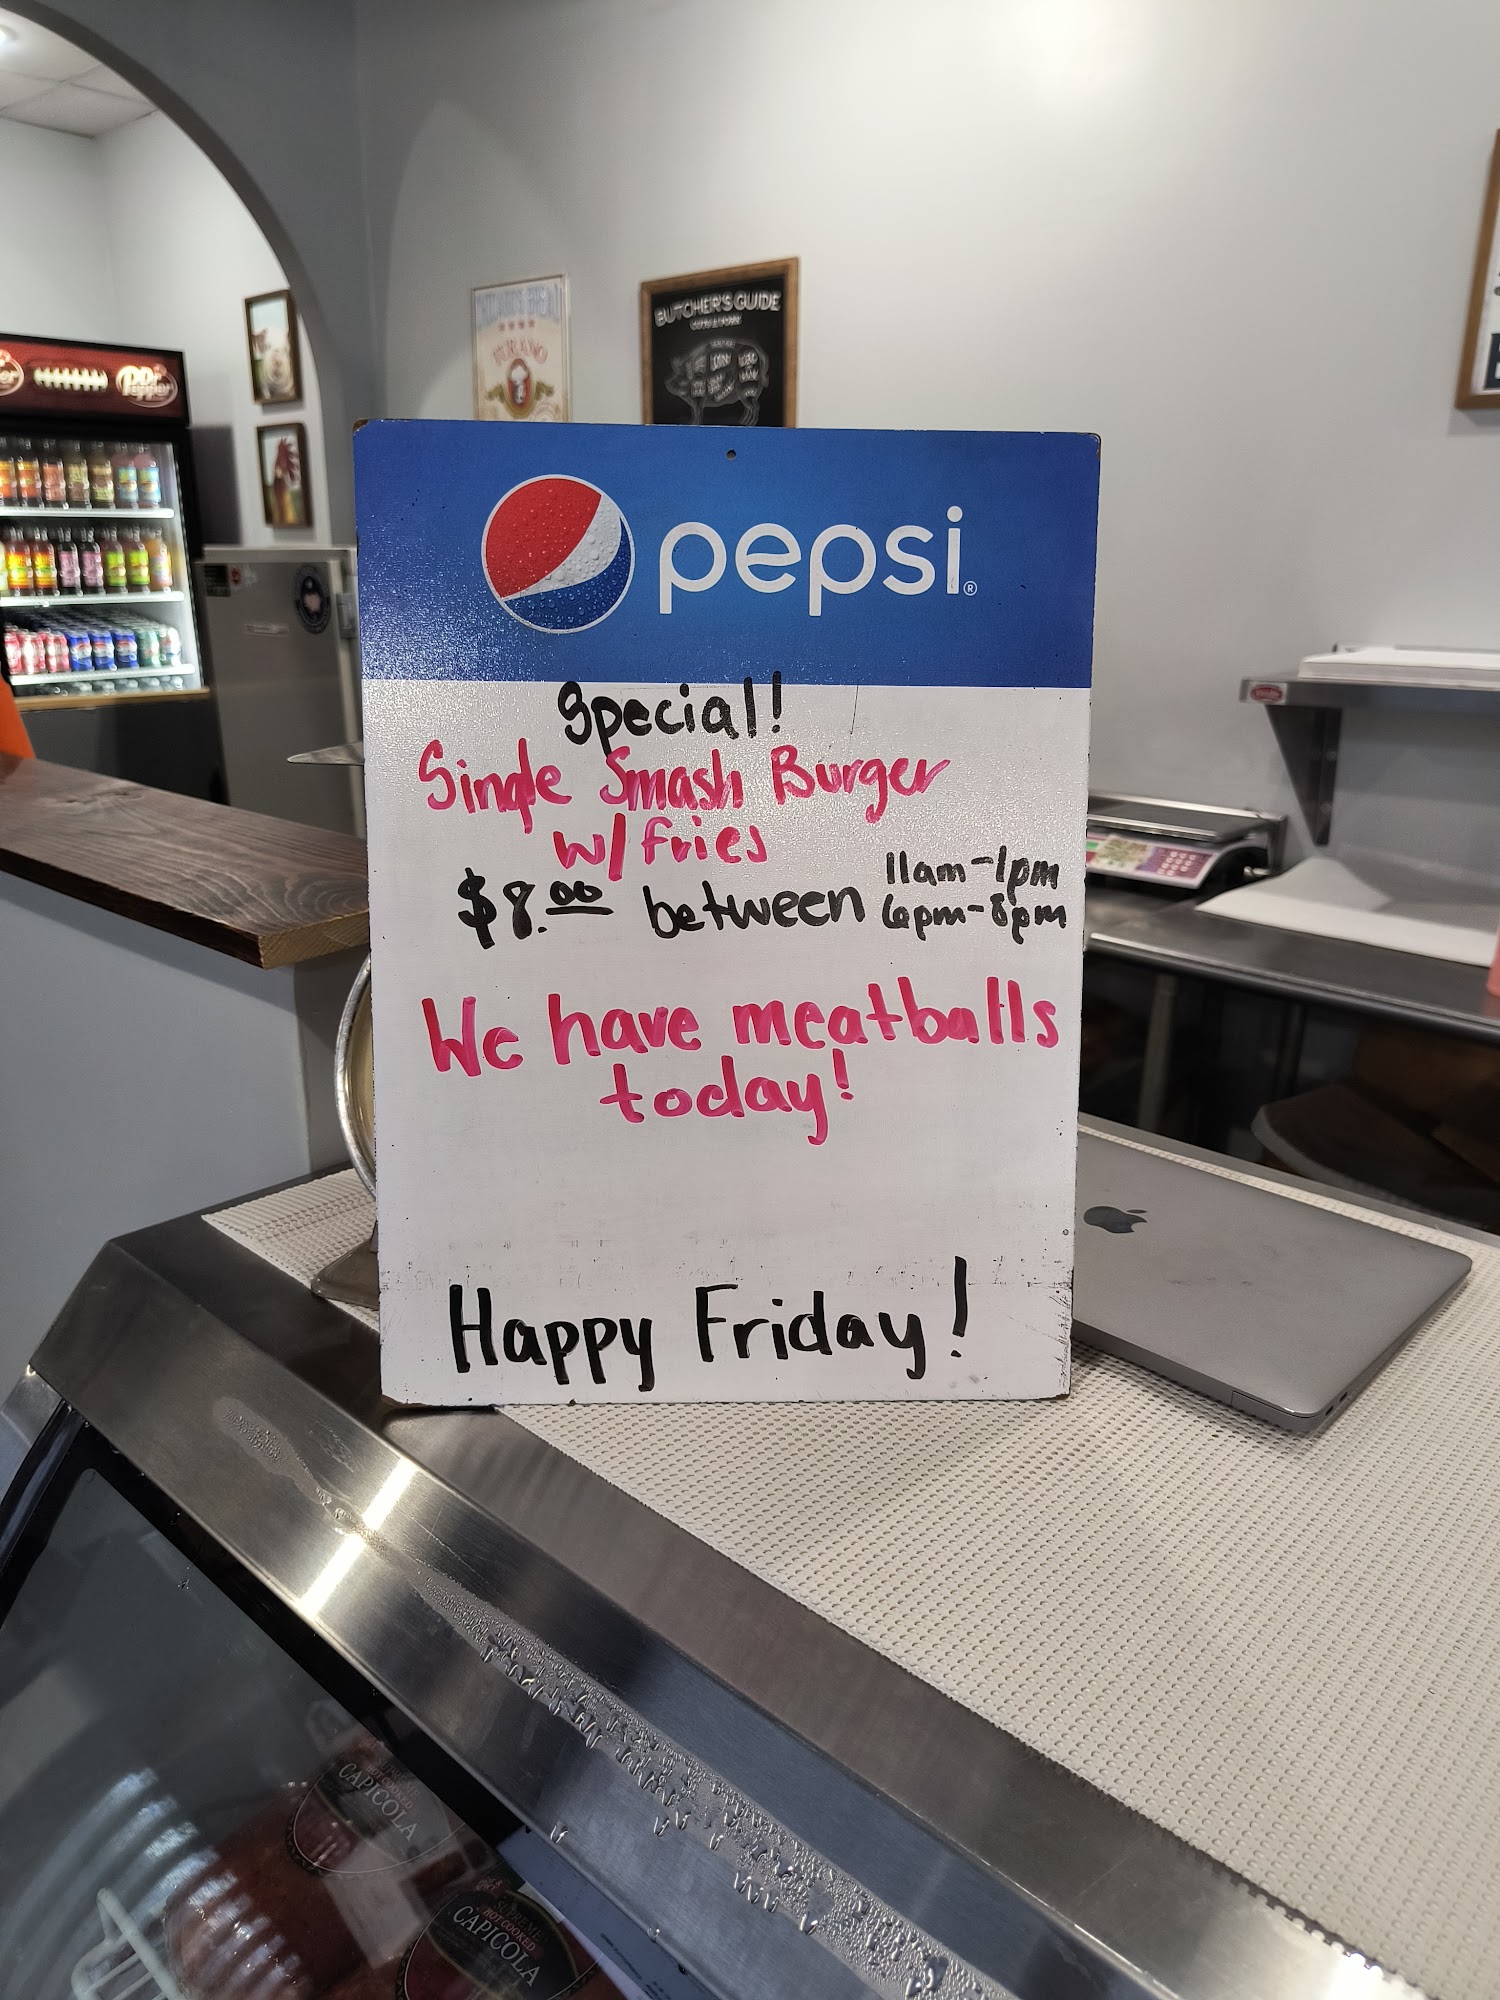 Dr Pepper
BUTCHER'S GUIDE
MURANO
pepsi®
Special!
Single Smash Burger
w/ fries
$8.00 between 11am-1pm
6pm-8pm
We have meatballs
today!
Happy Friday!
CAPICOLA
SUPREME
HOT COOKED
CAPICOLA